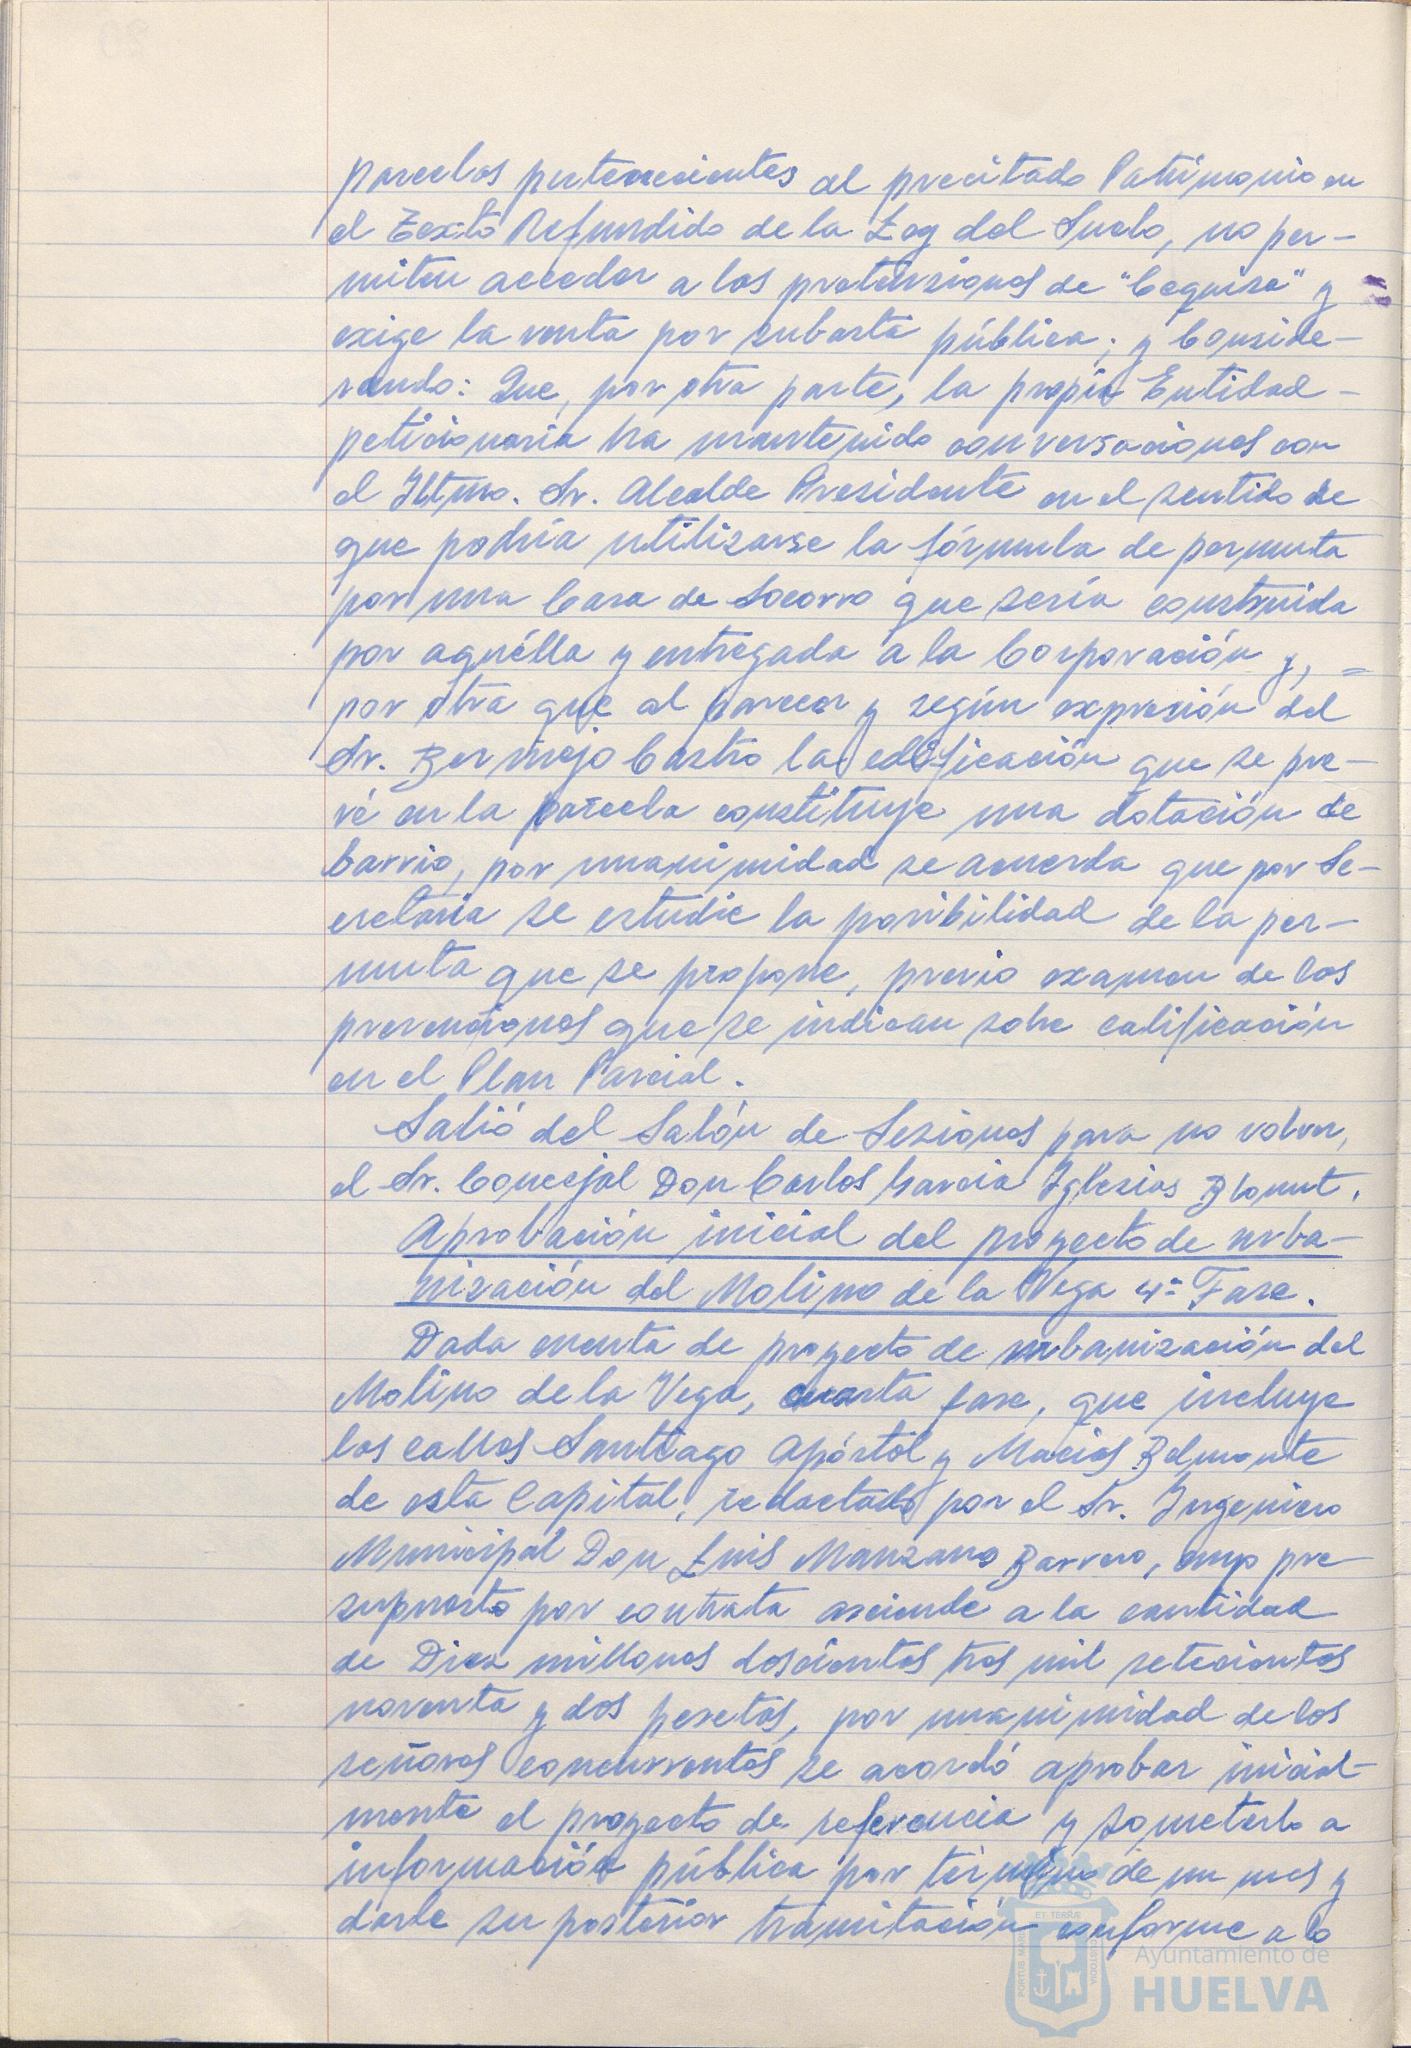 parcelas pertenecientes al precitado Patrimonio en
el Texto Refundido de la Ley del Suelo, no per-
miten acceder a las pretensiones de "Cequisa" y
exige la venta por subasta pública; y Conside-
rando: Que, por otra parte, la propia Entidad -
peticionaria ha mantenido conversaciones con
el Iltmo. Sr. Alcalde Presidente en el sentido de
que podría utilizarse la fórmula de permuta
por una Casa de Socorro que sería construida
por aquélla y entregada a la Corporación y, =
por otra que al parecer y según expresión del
Sr. Bermejo Castro la edificación que se pre-
vé en la parcela constituye una dotación de
barrio, por unanimidad se acuerda que por Se-
cretaría se estudie la posibilidad de la per-
muta que se propone, previo examen de las
prevenciones que se indican sobre calificación
en el Plan Parcial.
Salió del Salón de Sesiones para no volver,
el Sr. Concejal Don Carlos García Iglesias Blomut.
Aprobación inicial del proyecto de urba-
nización del Molino de la Vega 4ª Fase.
Dada cuenta de proyecto de urbanización del
Molino de la Vega, cuarta fase, que incluye
las calles Santiago Apóstol y Macías Belmonte
de esta Capital, redactado por el Sr. Ingeniero
Municipal Don Luis Manzano Barrero, cuyo pre-
supuesto por contrata asciende a la cantidad
de Diez millones doscientos tres mil setecientos
noventa y dos pesetas, por unanimidad de los
señores concurrentes se acordó aprobar inicial-
mente el proyecto de referencia y someterlo a
información pública por término de un mes y
darle su posterior tramitación conforme a lo
ET TERRÆ
PORTUS MARIS
CUSTODIA
Ayuntamiento de
HUELVA